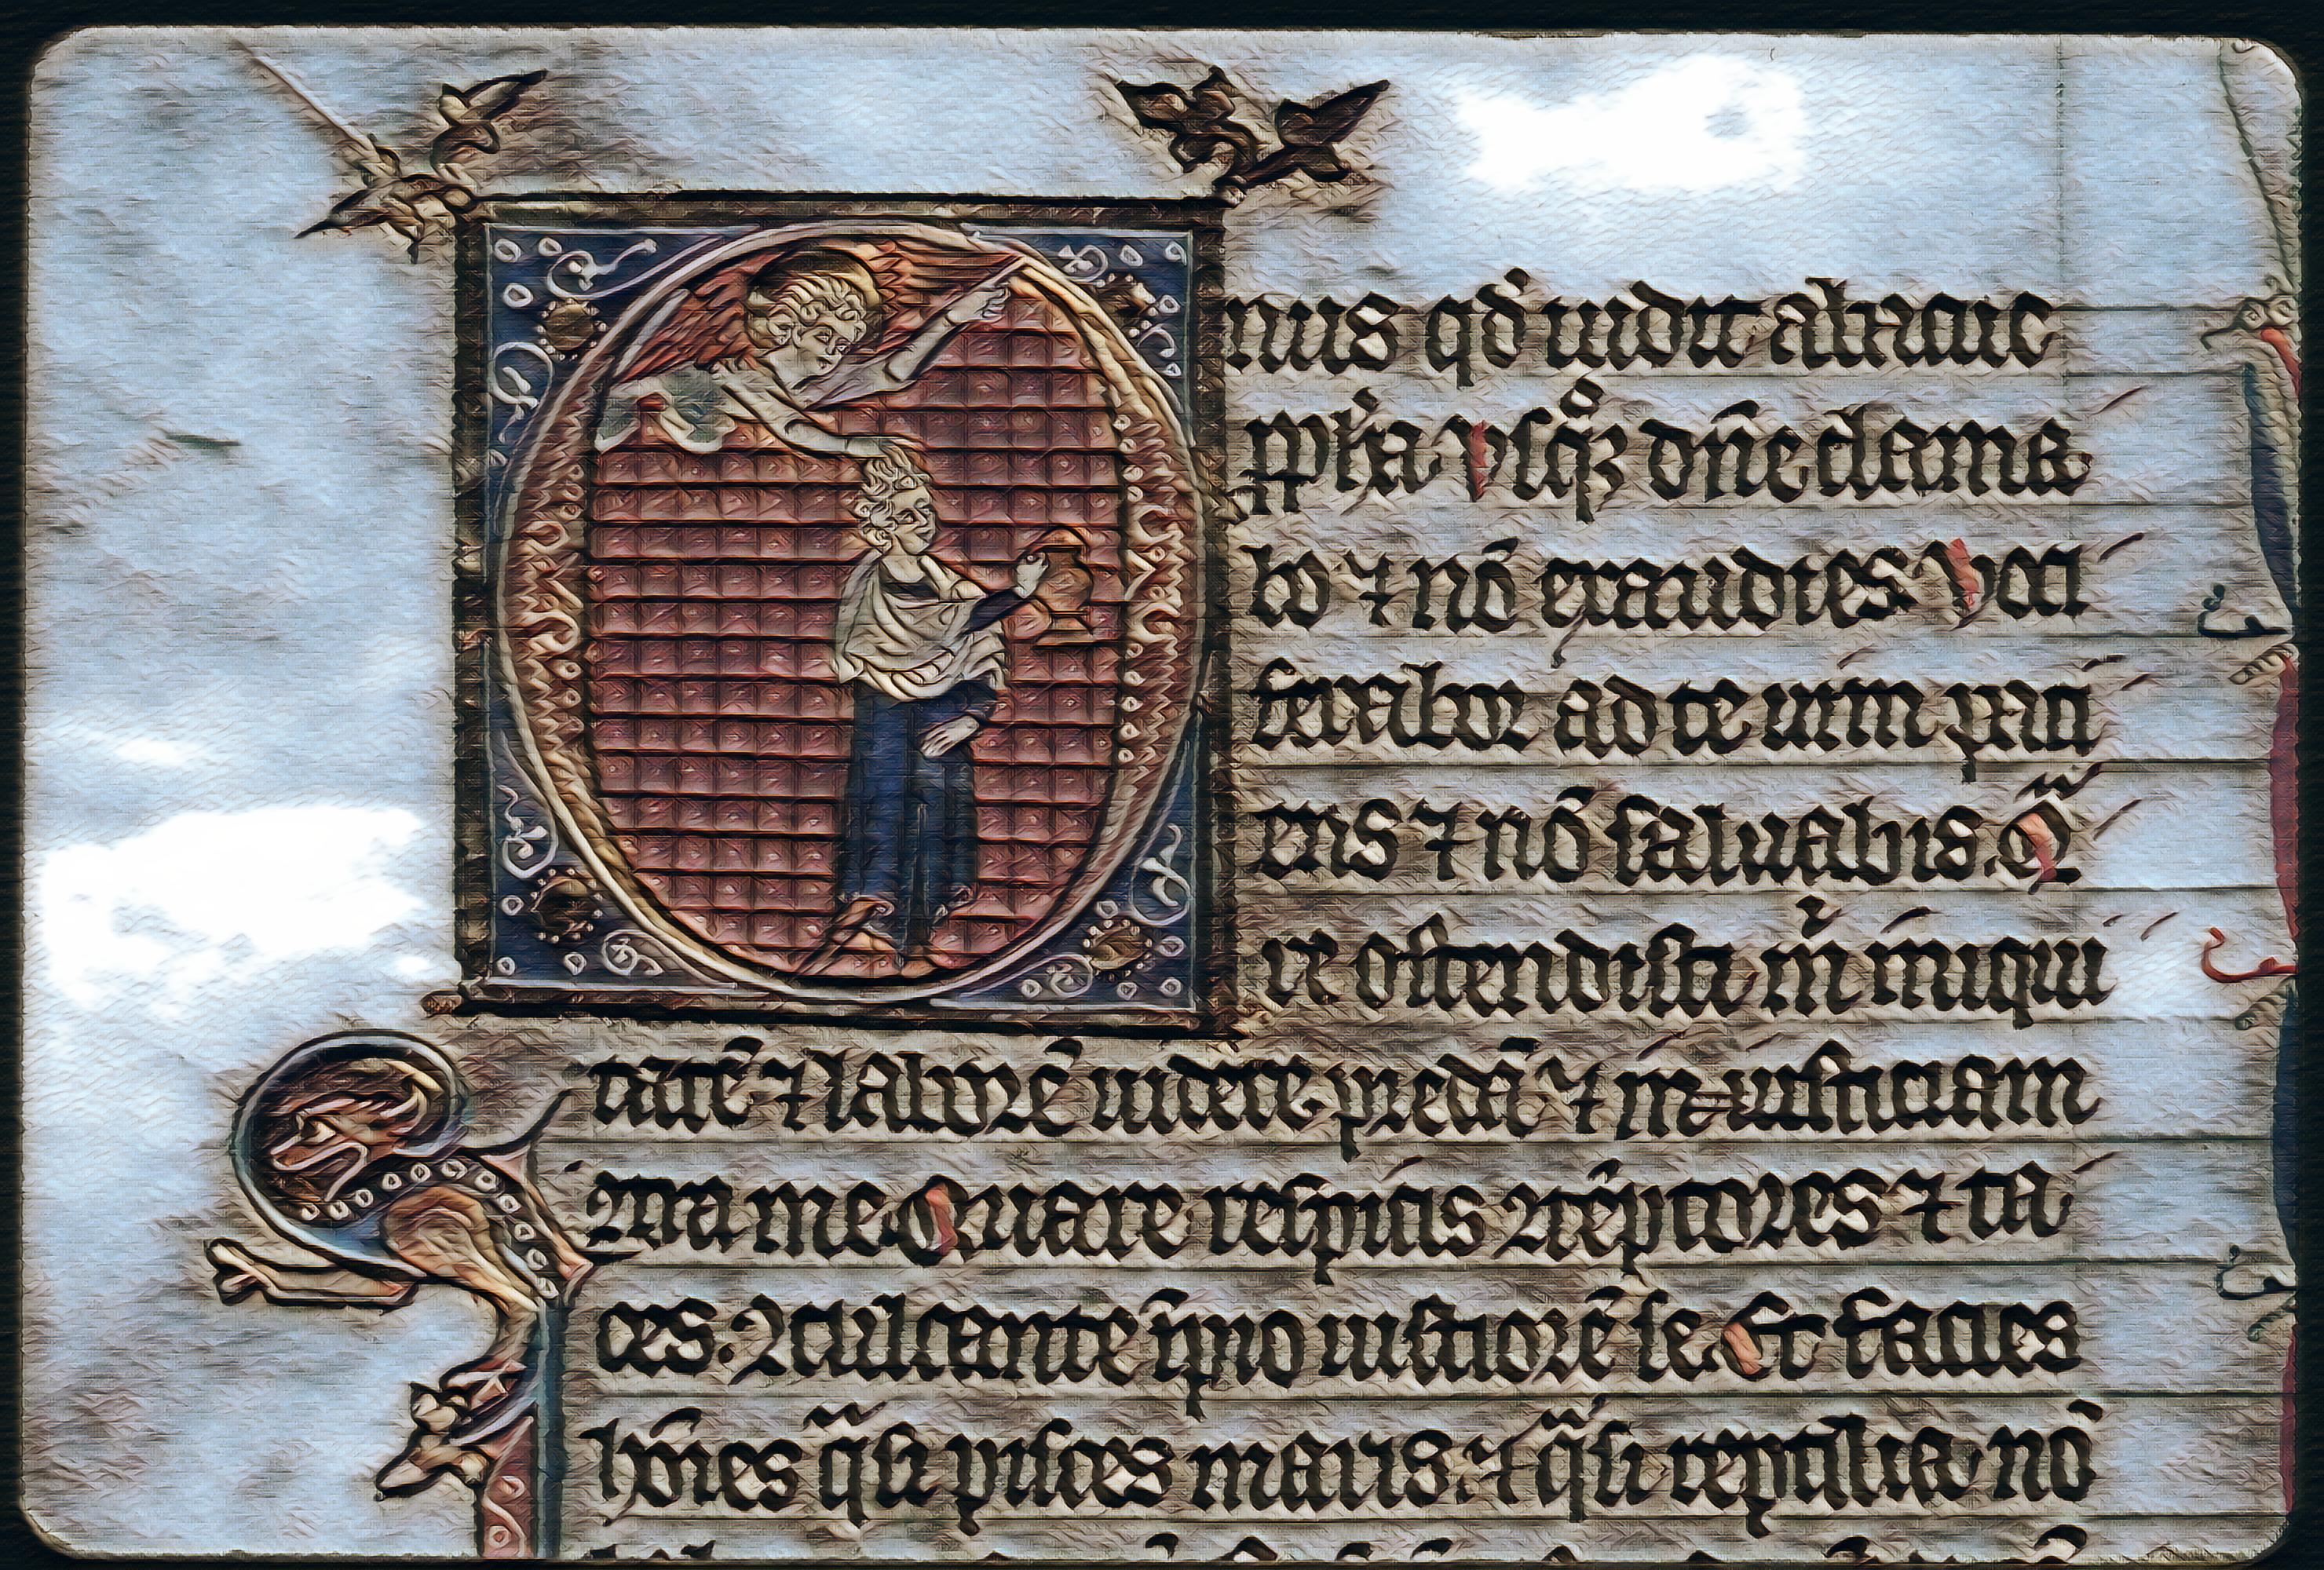 Onus qď uidit abacuc
ꝓph̃a Vsq̊ꝫ dñe clama
bo ⁊ nō exaudies Voci
ferabor ad te uim paci
ens ⁊ nō saluabis. Qͣ
re ostendisti m̊ iniqui
tatē ⁊ laborē uidere predā ⁊ iniusticiam
ꝯtra me Quare respicis ꝯtēptores ⁊ ta
ces. ꝯculcante īpio iustiorē se. Et facies
hoīes qͣsi pisces maris. ⁊ qͣsi reptilia nō